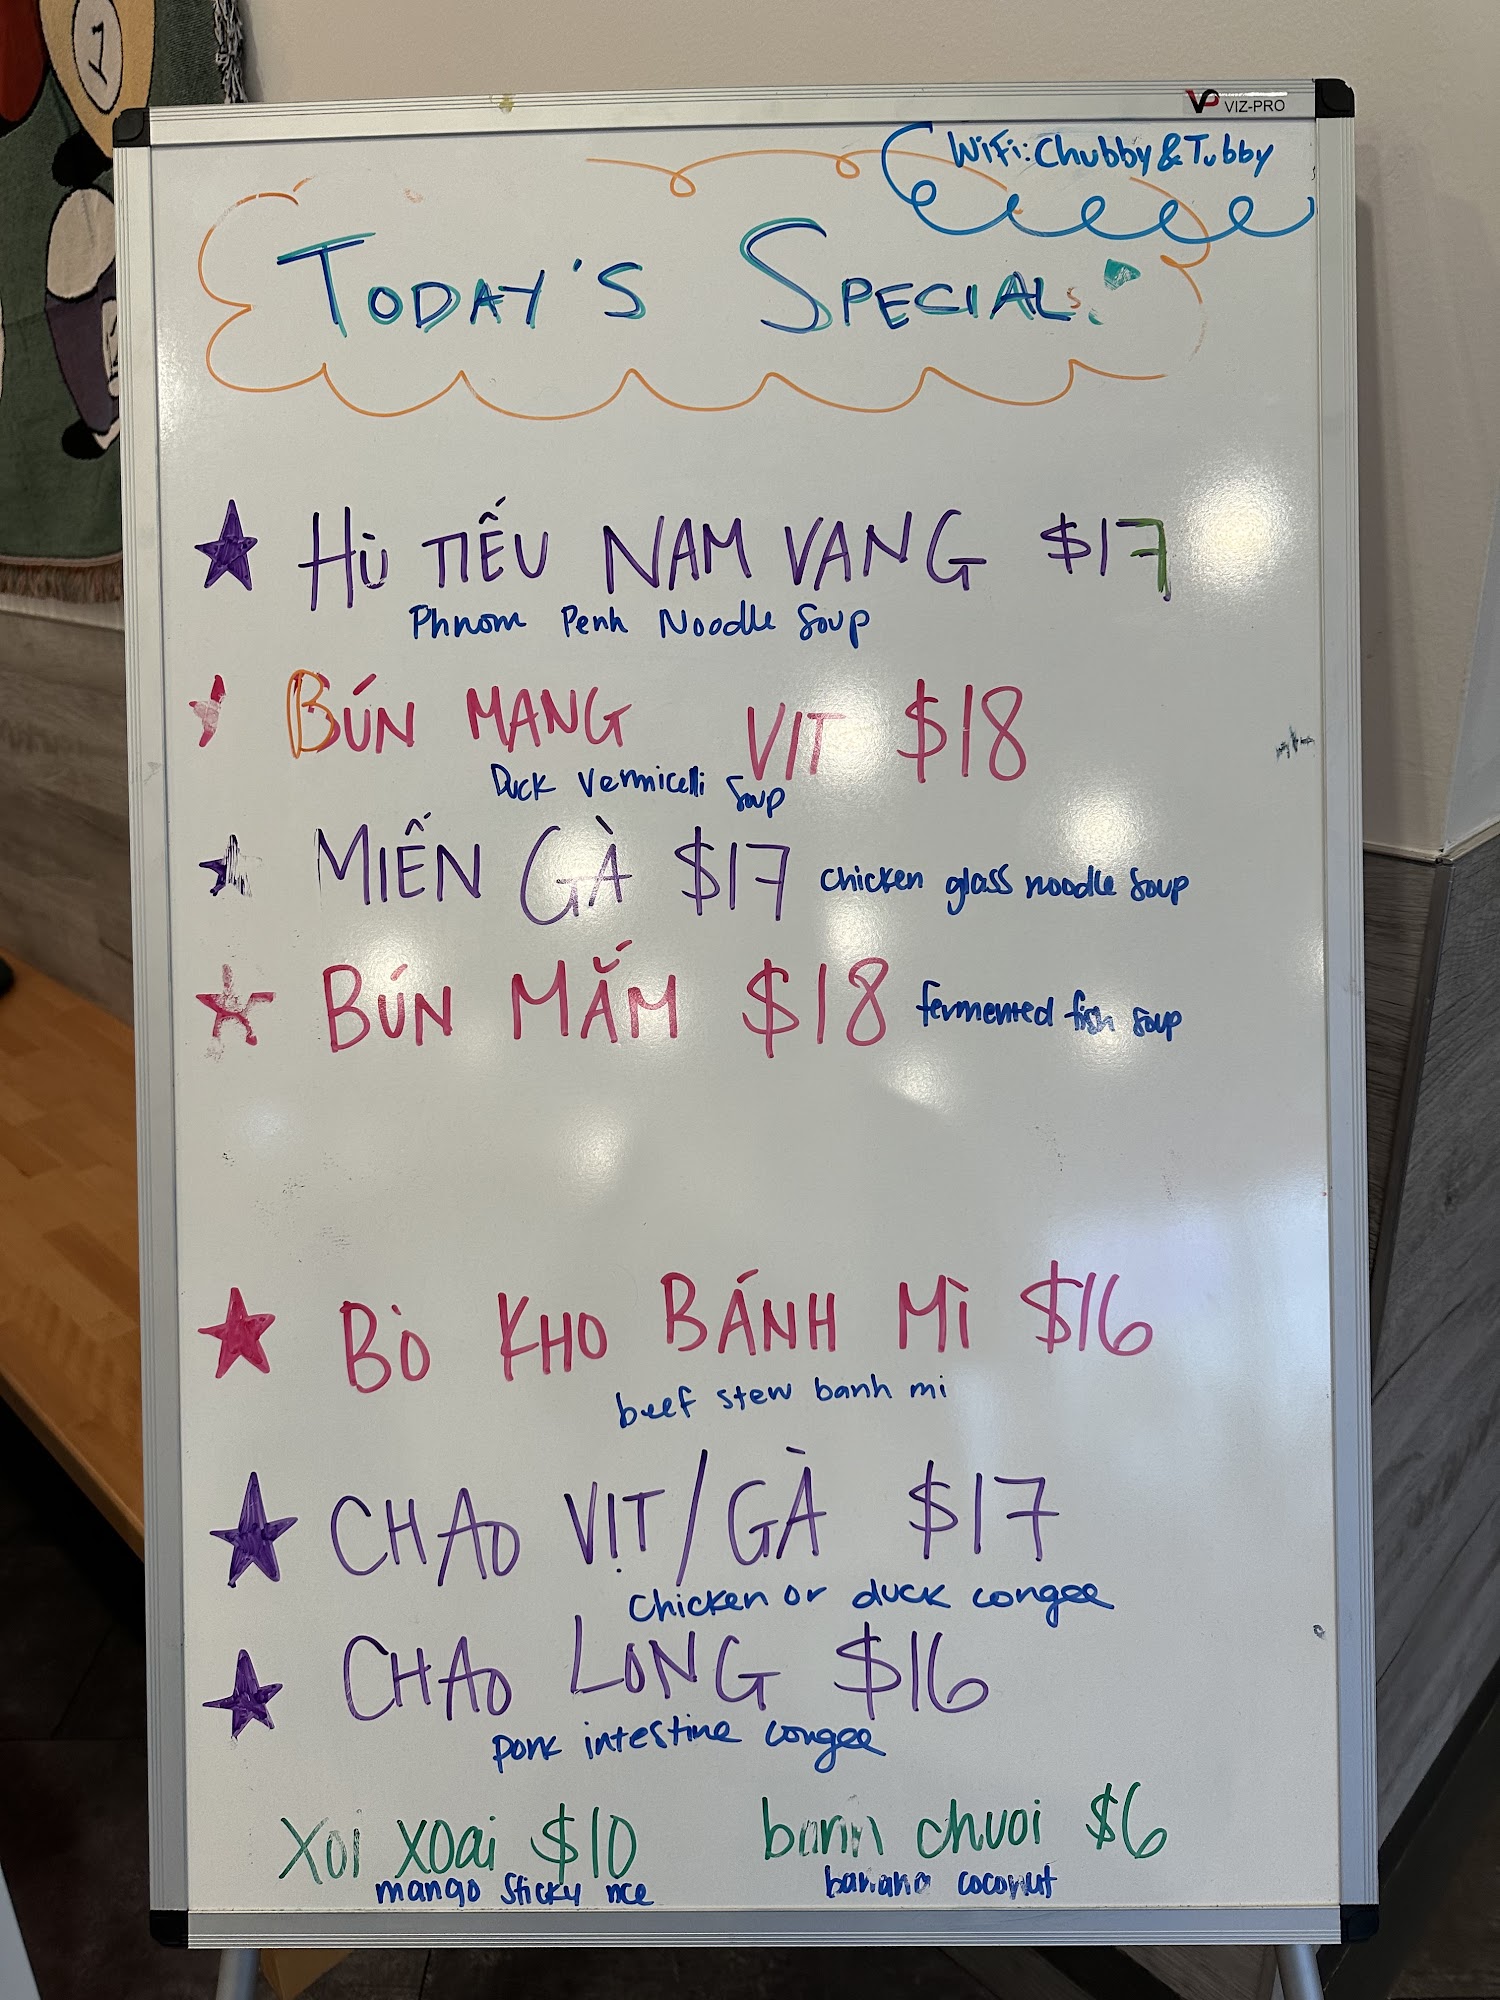 VP VIZ-PRO
WiFi: Chubby & Tubby
TODAY'S SPECIALS:
HÙ TIẾU NAM VANG $17
Phnom Penh Noodle Soup
BÚN MANG VIT $18
Duck Vermicelli Soup
MIẾN GÀ $17 chicken glass noodle soup
BÚN MẮM $18 fermented fish soup
BÒ KHO BÁNH MÌ $16
beef stew banh mi
CHAO VỊT/GÀ $17
Chicken or duck congee
CHAO LONG $16
pork intestine congee
xoi xoai $10 banh chuoi $6
mango sticky rice banana coconut